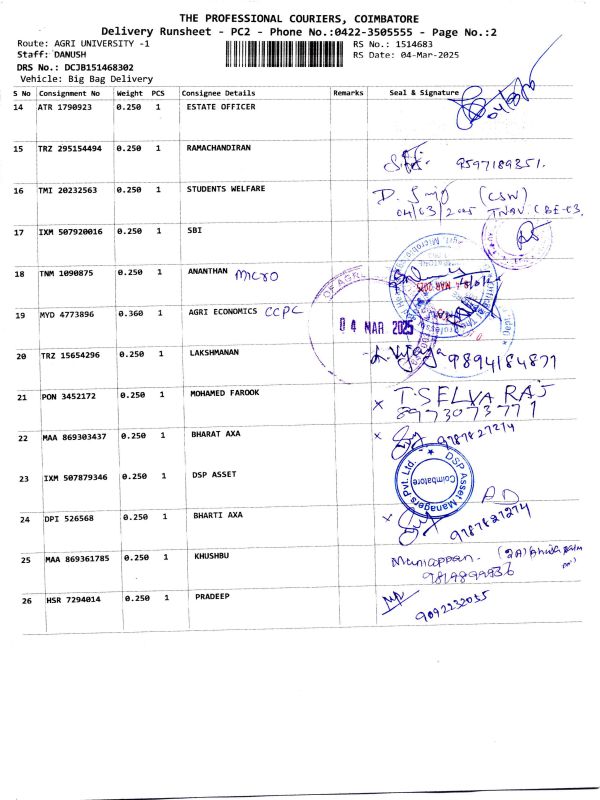 THE PROFESSIONAL COURIERS, COIMBATORE
Delivery Runsheet - PC2 - Phone No.:0422-3505555 - Page No.:2
Route: AGRI UNIVERSITY -1 RS No.: 1514683
Staff: DANUSH RS Date: 04-Mar-2025
DRS No.: DCJB151468302
Vehicle: Big Bag Delivery
S No Consignment No Weight PCS Consignee Details Remarks Seal & Signature
14 ATR 1790923 0.250 1 ESTATE OFFICER
15 TRZ 295154494 0.250 1 RAMACHANDIRAN 9597189351.
16 TMI 20232563 0.250 1 STUDENTS WELFARE (CSW)
04/03/2025 TNAU, CBE-03.
17 IXM 507920016 0.250 1 SBI
18 TNM 1090875 0.250 1 ANANTHAN MICRO
19 MYD 4773896 0.360 1 AGRI ECONOMICS CCPC
04 MAR 2025
20 TRZ 15654296 0.250 1 LAKSHMANAN 9894184871
21 PON 3452172 0.250 1 MOHAMED FAROOK X T.SELVA RAJ
8973073771
22 MAA 869303437 0.250 1 BHARAT AXA X 9787827274
DSP Asset Managers Pvt. Ltd.
Coimbatore
23 IXM 507879346 0.250 1 DSP ASSET
24 DPI 526568 0.250 1 BHARTI AXA X 9787827274
25 MAA 869361785 0.250 1 KHUSHBU Muniappan.
26 HSR 7294014 0.250 1 PRADEEP 9092232055